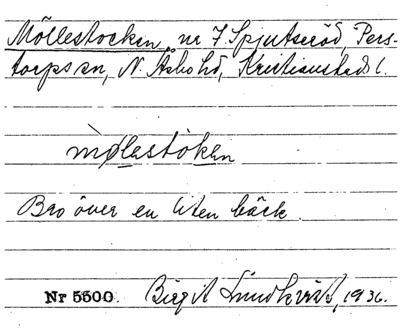 Möllestocken, nr 7 Spjutseröd, Pers-
torps sn, N. Åsbo hd, Kristianstads l.
mølestöken
Bro över en liten bäck.
Nr 5500. Birgit Lindkvist, 1936.